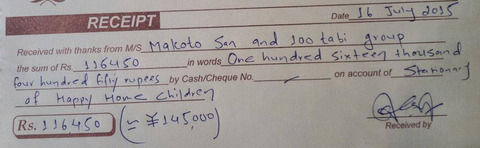 RECEIPT
Date 16 July 2015
Received with thanks from M/S Makoto San and 100 tabi group
the sum of Rs. 116450 in words One hundred sixteen thousand
four hundred fifty rupees by Cash/Cheque No. on account of Stationary
of Happy Home Children
Rs. 116450 (≃ ¥145,000)
Received by